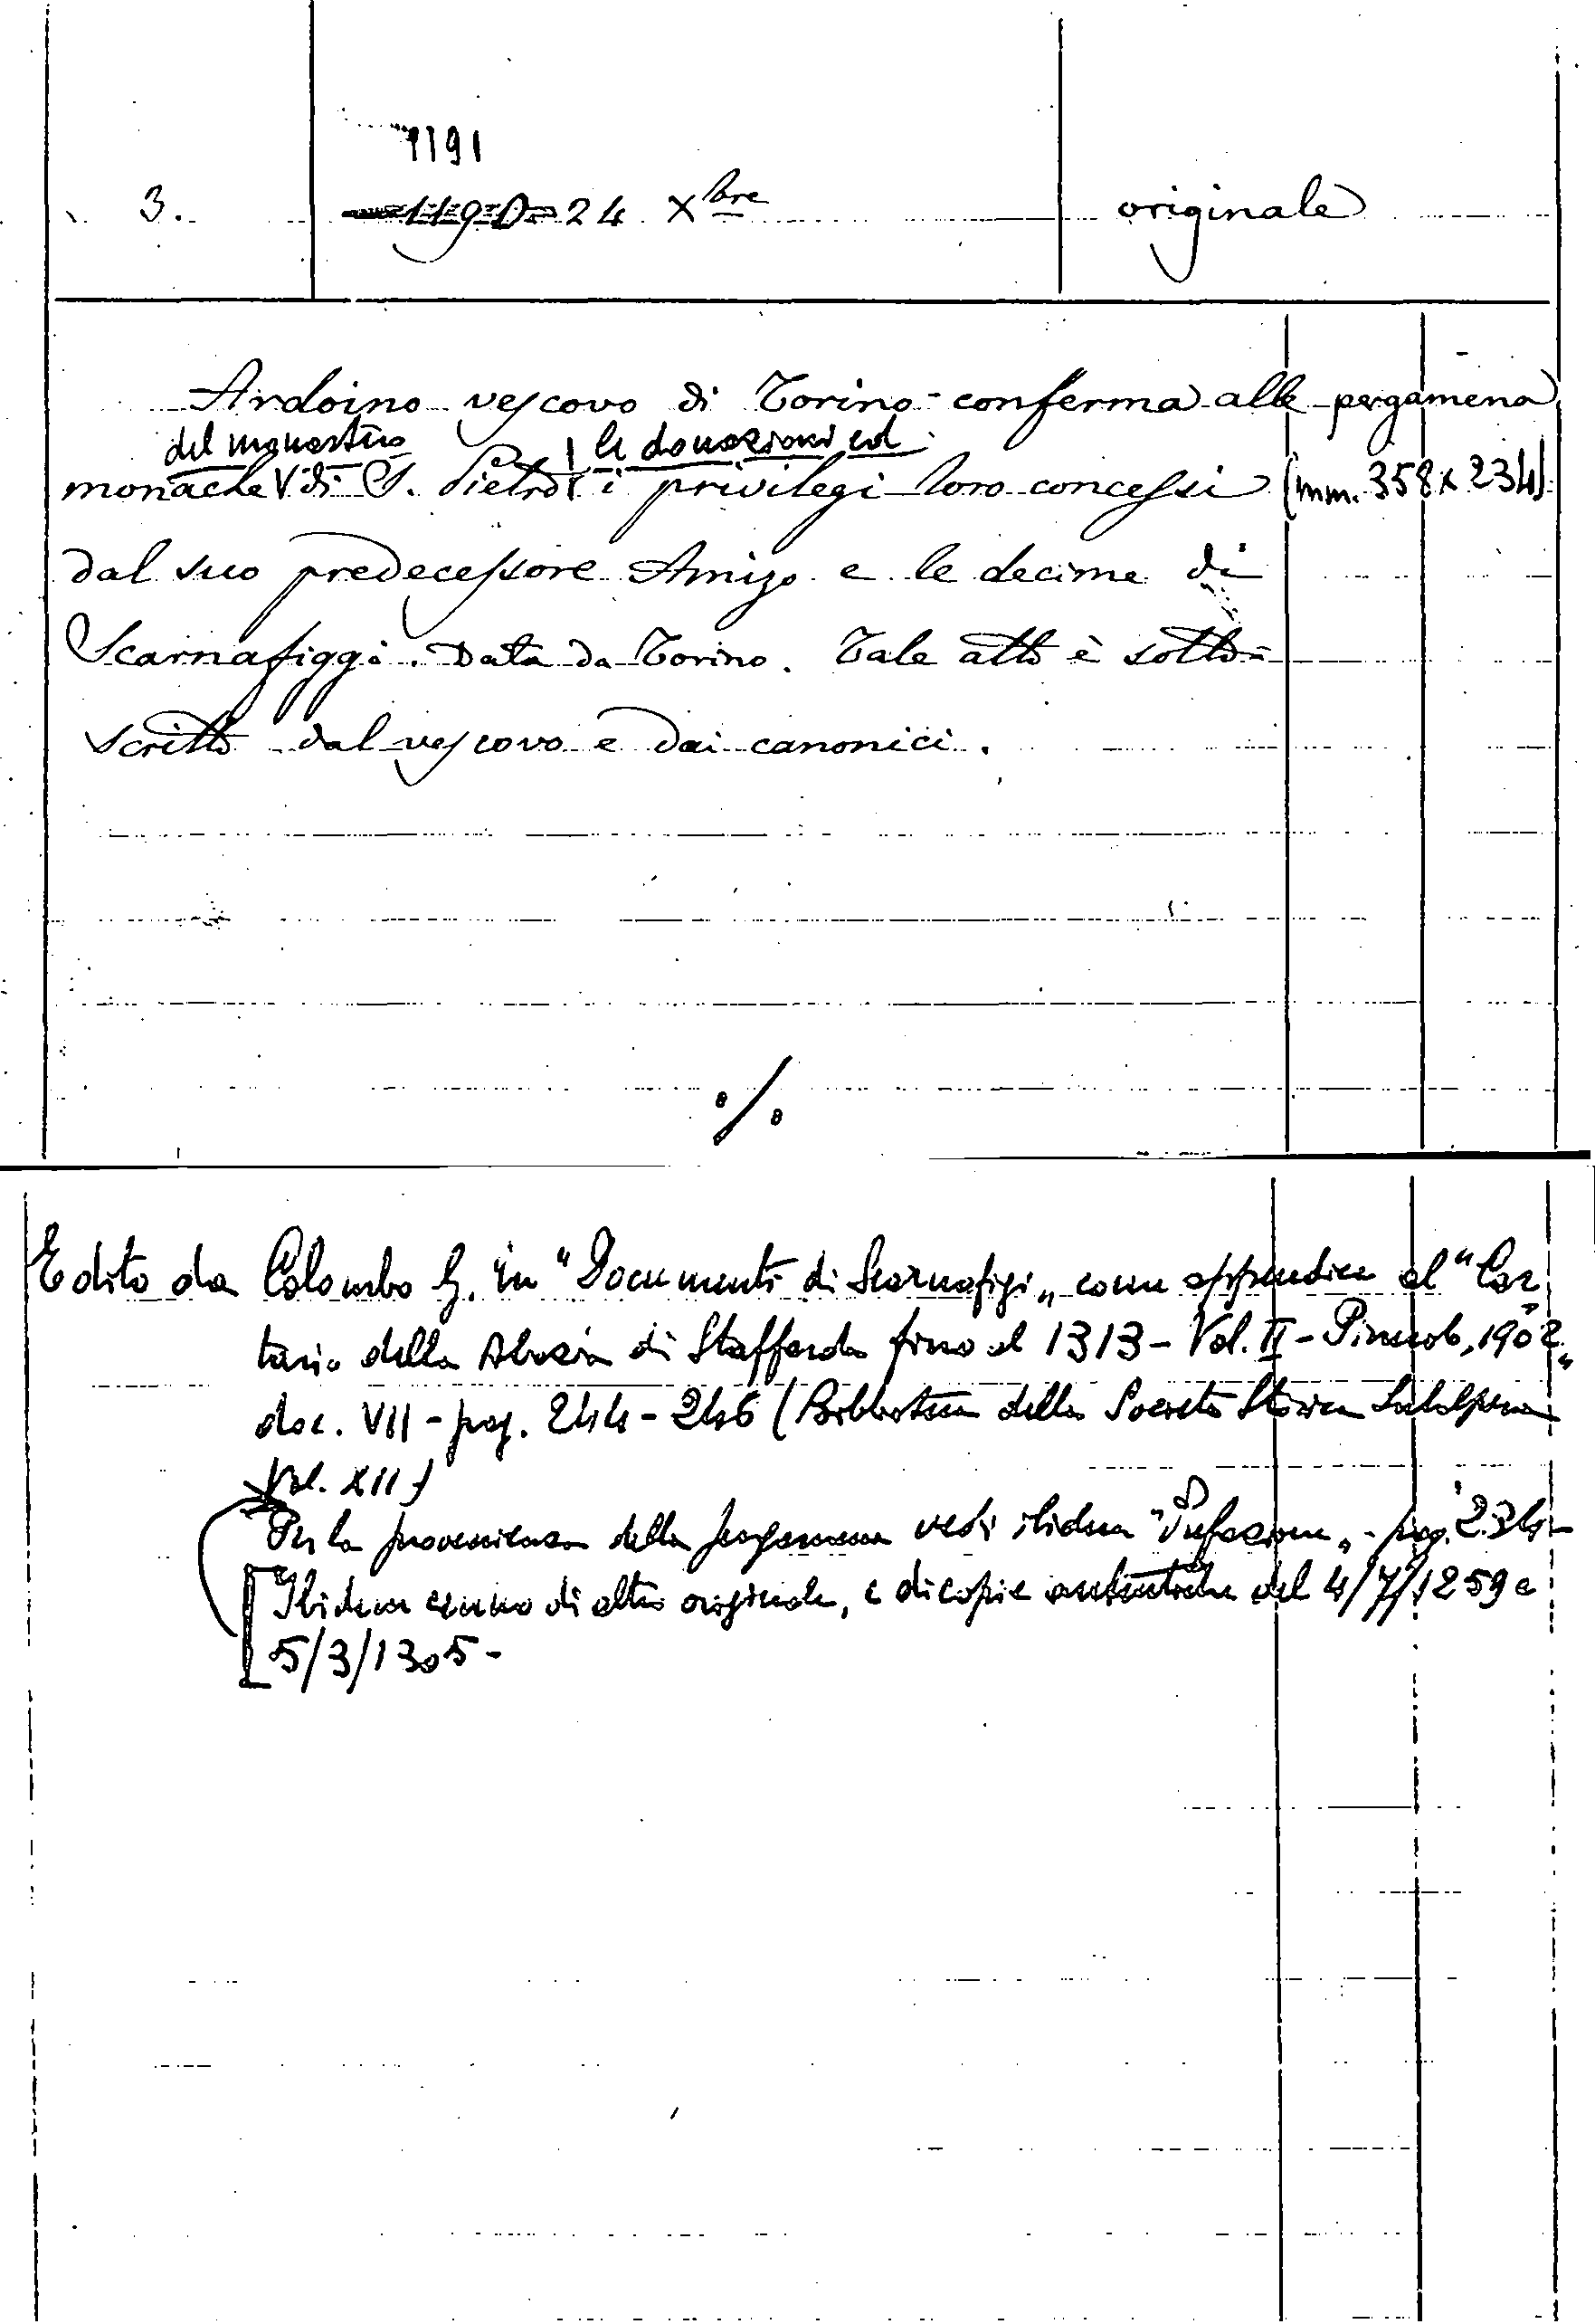 1191
3. 1190 24 Xbre originale
Ardoino vescovo di Torino conferma alle pergamena
del monastero le donazioni ed
monache V di S. Pietro i privilegi loro concessi (mm. 358 x 234)
dal suo predecessore Amizo e le decime di
Scarnafiggi. Data da Torino. Tale atto è sotto=
scritto dal vescovo e dai canonici.
./.
Edito da Colombo G. in "Documenti di Scarnafigi„ come appendice al "Car
tario della Abazia di Staffarda fino al 1313 - Vol. II - Pinerolo, 1902„
doc. VII - pag. 244 - 246 (Biblioteca della Società Storica Subalpina
Vol. XII)
Per la provenienza della pergamena vedi ibidem "Prefazione„ - pag. 234 -
Ibidem cenno di altro originale, e di copie autentiche del 4/7/1259 e
5/3/1305 -